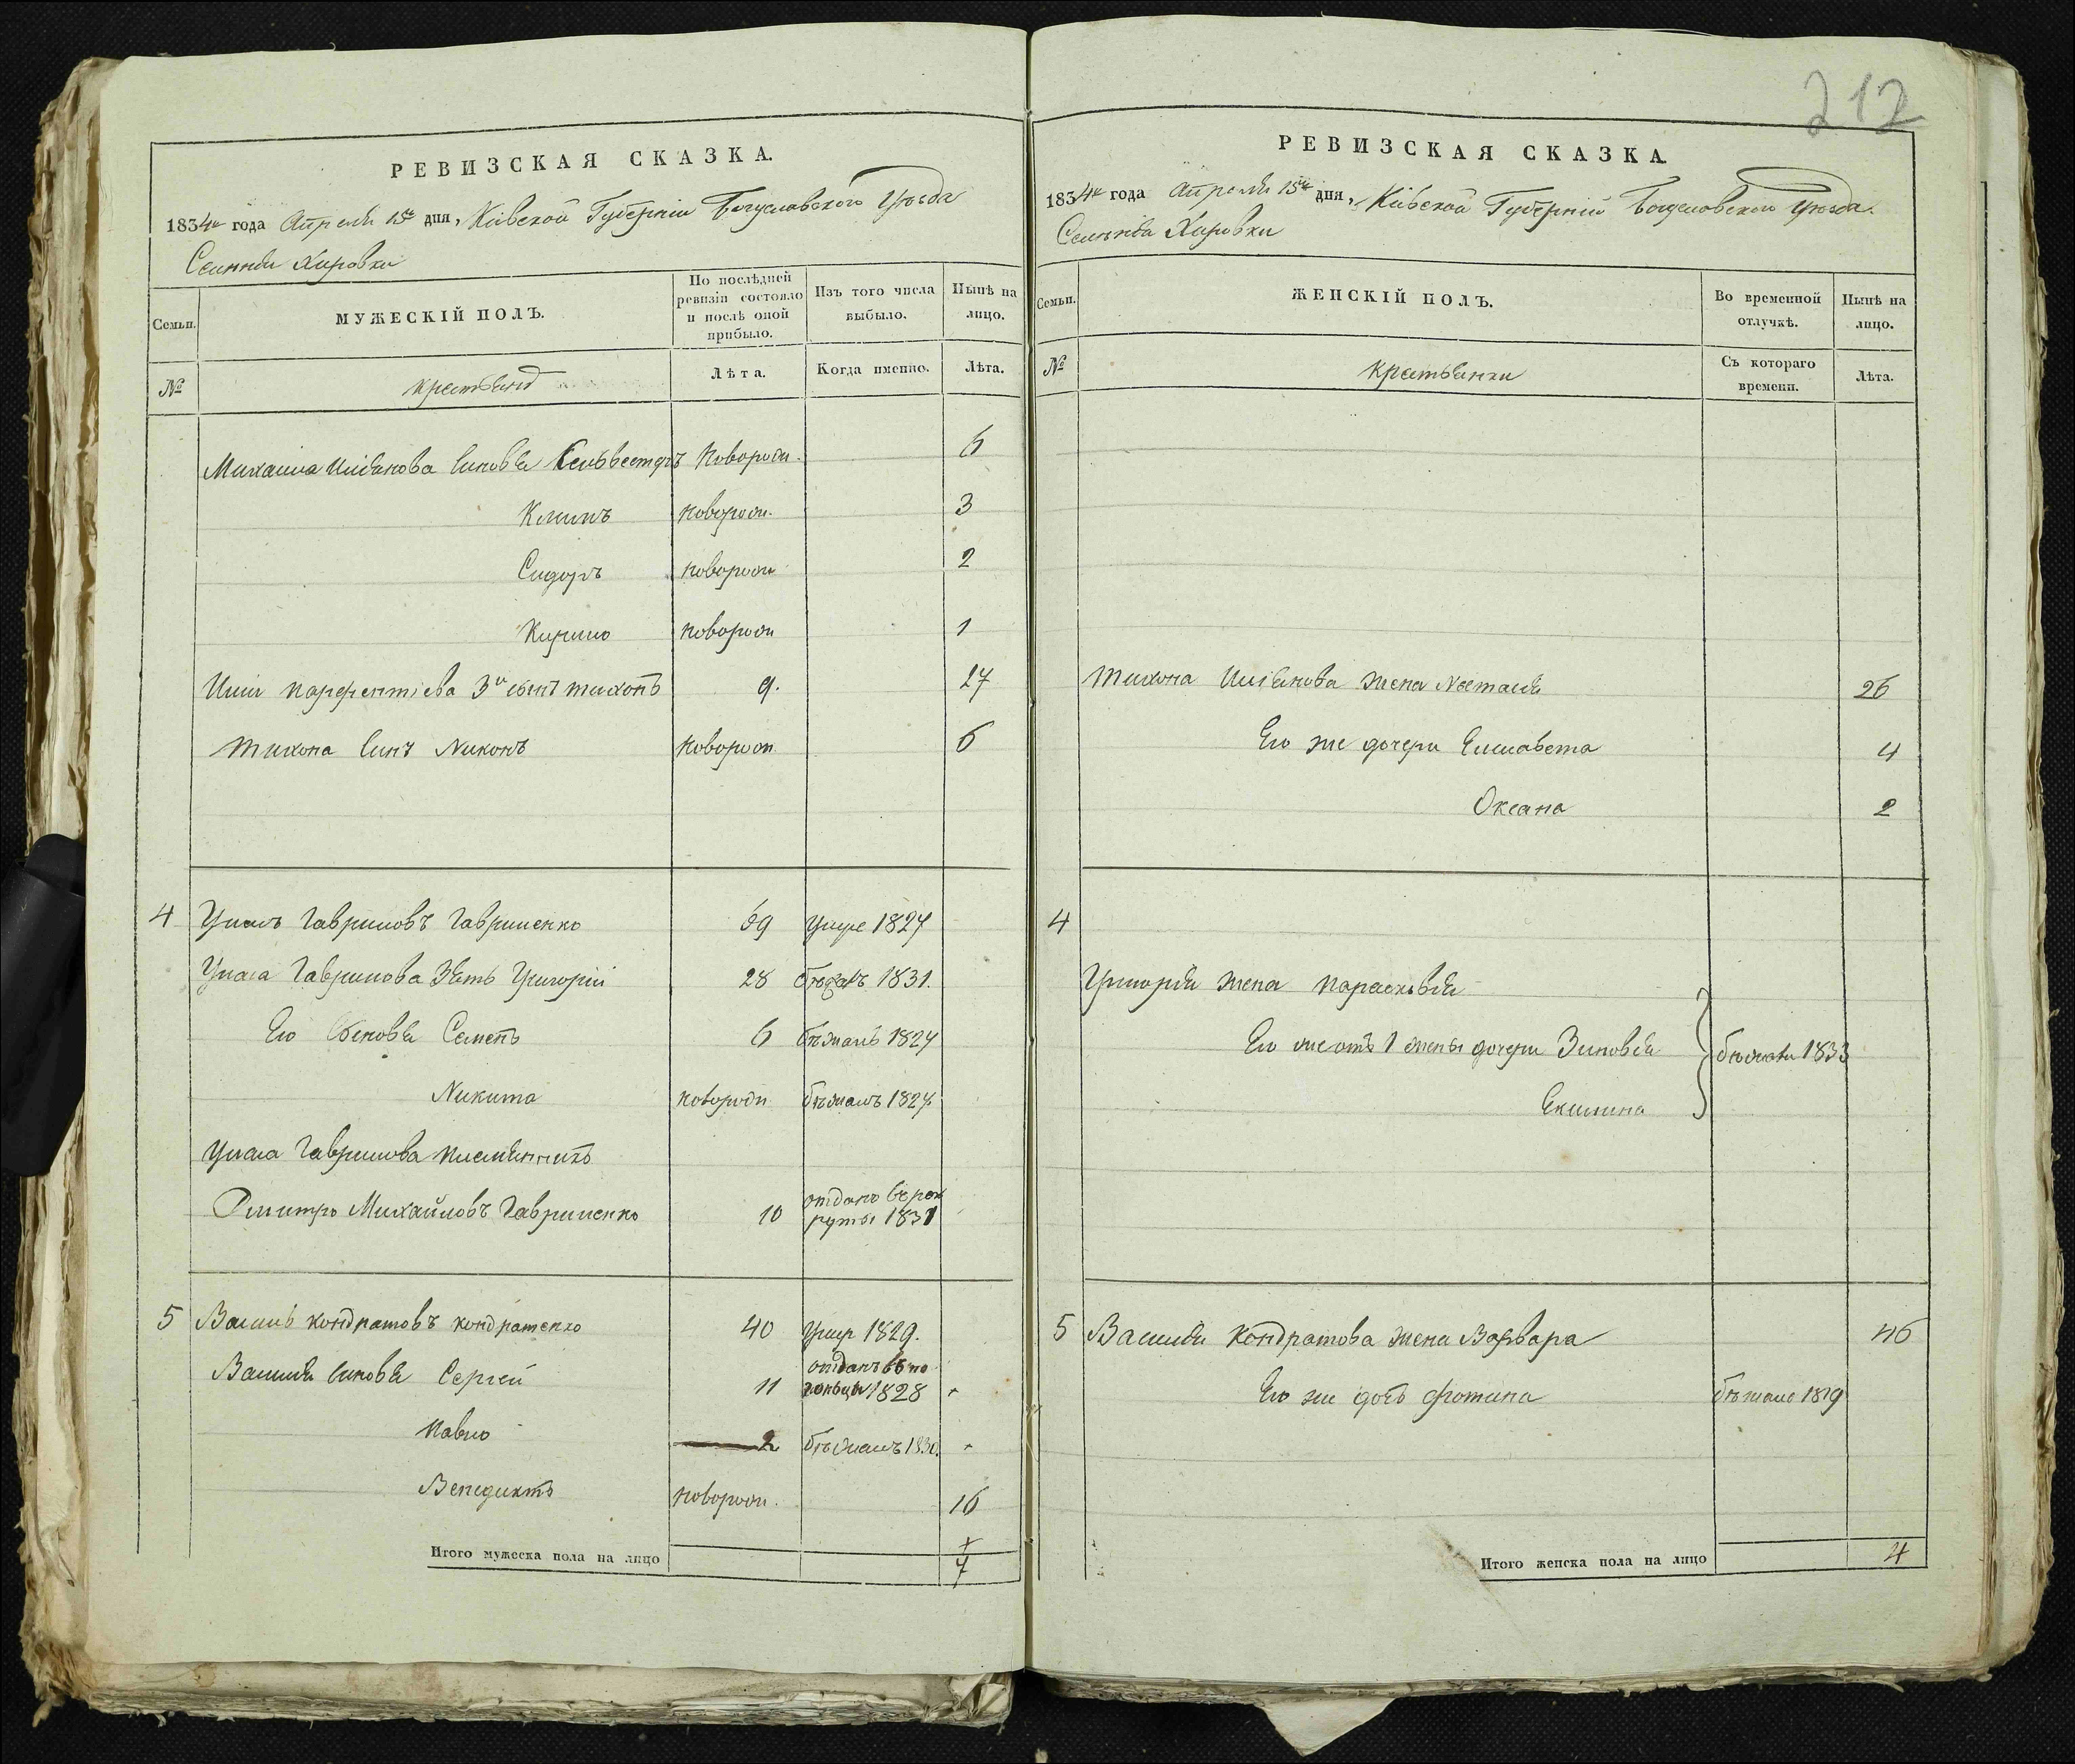 212
РЕВИЗСКАЯ СКАЗКА.
1834го года Апреля 15го дня, Кіевской Губерніи Богуславского Уезда
Селенія Хировки
Семьи.
МУЖЕСКІЙ ПОЛЪ.
По послѣдней ревизіи состояло и послѣ оной прибыло.
Изъ того числа выбыло.
Нынѣ на лицо.
№
Крестьянъ
Лѣта.
Когда именно.
Лѣта.
Михаила Иліянова Синовья Сельвестръ Новорож. 6
Климъ новорож. 3
Сидоръ новорож 2
Кирило новорож 1
Илии Парфентіева 3й сынъ Тихонъ 9. 27
Тихона Синъ Никонъ новорож 6
4 Гаврииловъ Гавриленко 69 Умре 1827
Гаврилова Зять Григорій 28 1831.
Его Сыновья Семенъ 6 бѣжалъ 1827
Никита новорож бѣжалъ 1827
Гаврилова племянникъ
Дмитро Михайловъ Гавриленко 10 отданъ въ рек
руты 1831
5 Василь Кондратовъ Кондратенко 40 Умер 1829.
Василия Синовья Сергей 11 отданъ въ по
гонцы 1828
Павло 2 бѣжалъ 1830.
Венедиктъ новорож. 16
Итого мужеска пола на лицо 7
РЕВИЗСКАЯ СКАЗКА.
1834го года Апреля 15го дня, Кіевской Губерніи Богуславского Уезда.
Селенія Хировки
Семьи.
ЖЕНСКІЙ ПОЛЪ.
Во временной отлучкѣ.
Нынѣ на лицо.
№
Крестьянки
Съ котораго времени.
Лѣта.
Тихона Иліянова жена Настасія 26
Его же дочери Елисавета 4
Оксана 2
4
Григорія жена Парасковія
Его же отъ 1 жены дочери Зиновія бѣжали 1833
Екилина
5 Василія Кондратова жена Варвара 46
Его же дочь Фотина бѣжала 1819
Итого женска пола на лицо 4